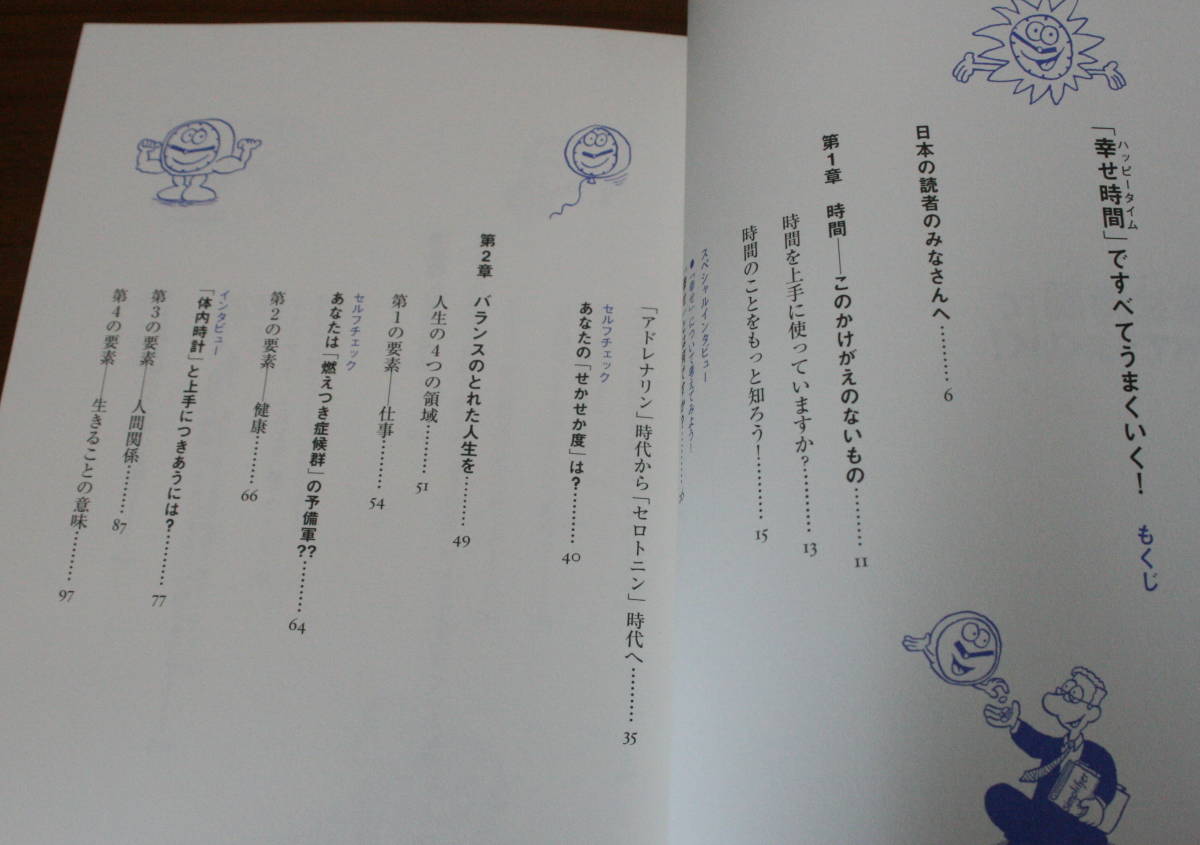 「幸せ時間」ですべてうまくいく！ もくじ
ハッピータイム
日本の読者のみなさんへ………6
第1章 時間——このかけがえのないもの………11
時間を上手に使っていますか？………13
時間のことをもっと知ろう！………15
スペシャルインタビュー
「アドレナリン」時代から「セロトニン」時代へ………35
セルフチェック
あなたの「せかせか度」は？………40
第2章 バランスのとれた人生を………49
人生の4つの領域………51
第1の要素——仕事………54
セルフチェック
あなたは「燃えつき症候群」の予備軍??………64
第2の要素——健康………66
インタビュー
「体内時計」と上手につきあうには？………77
第3の要素——人間関係………87
第4の要素——生きることの意味………97
simplify